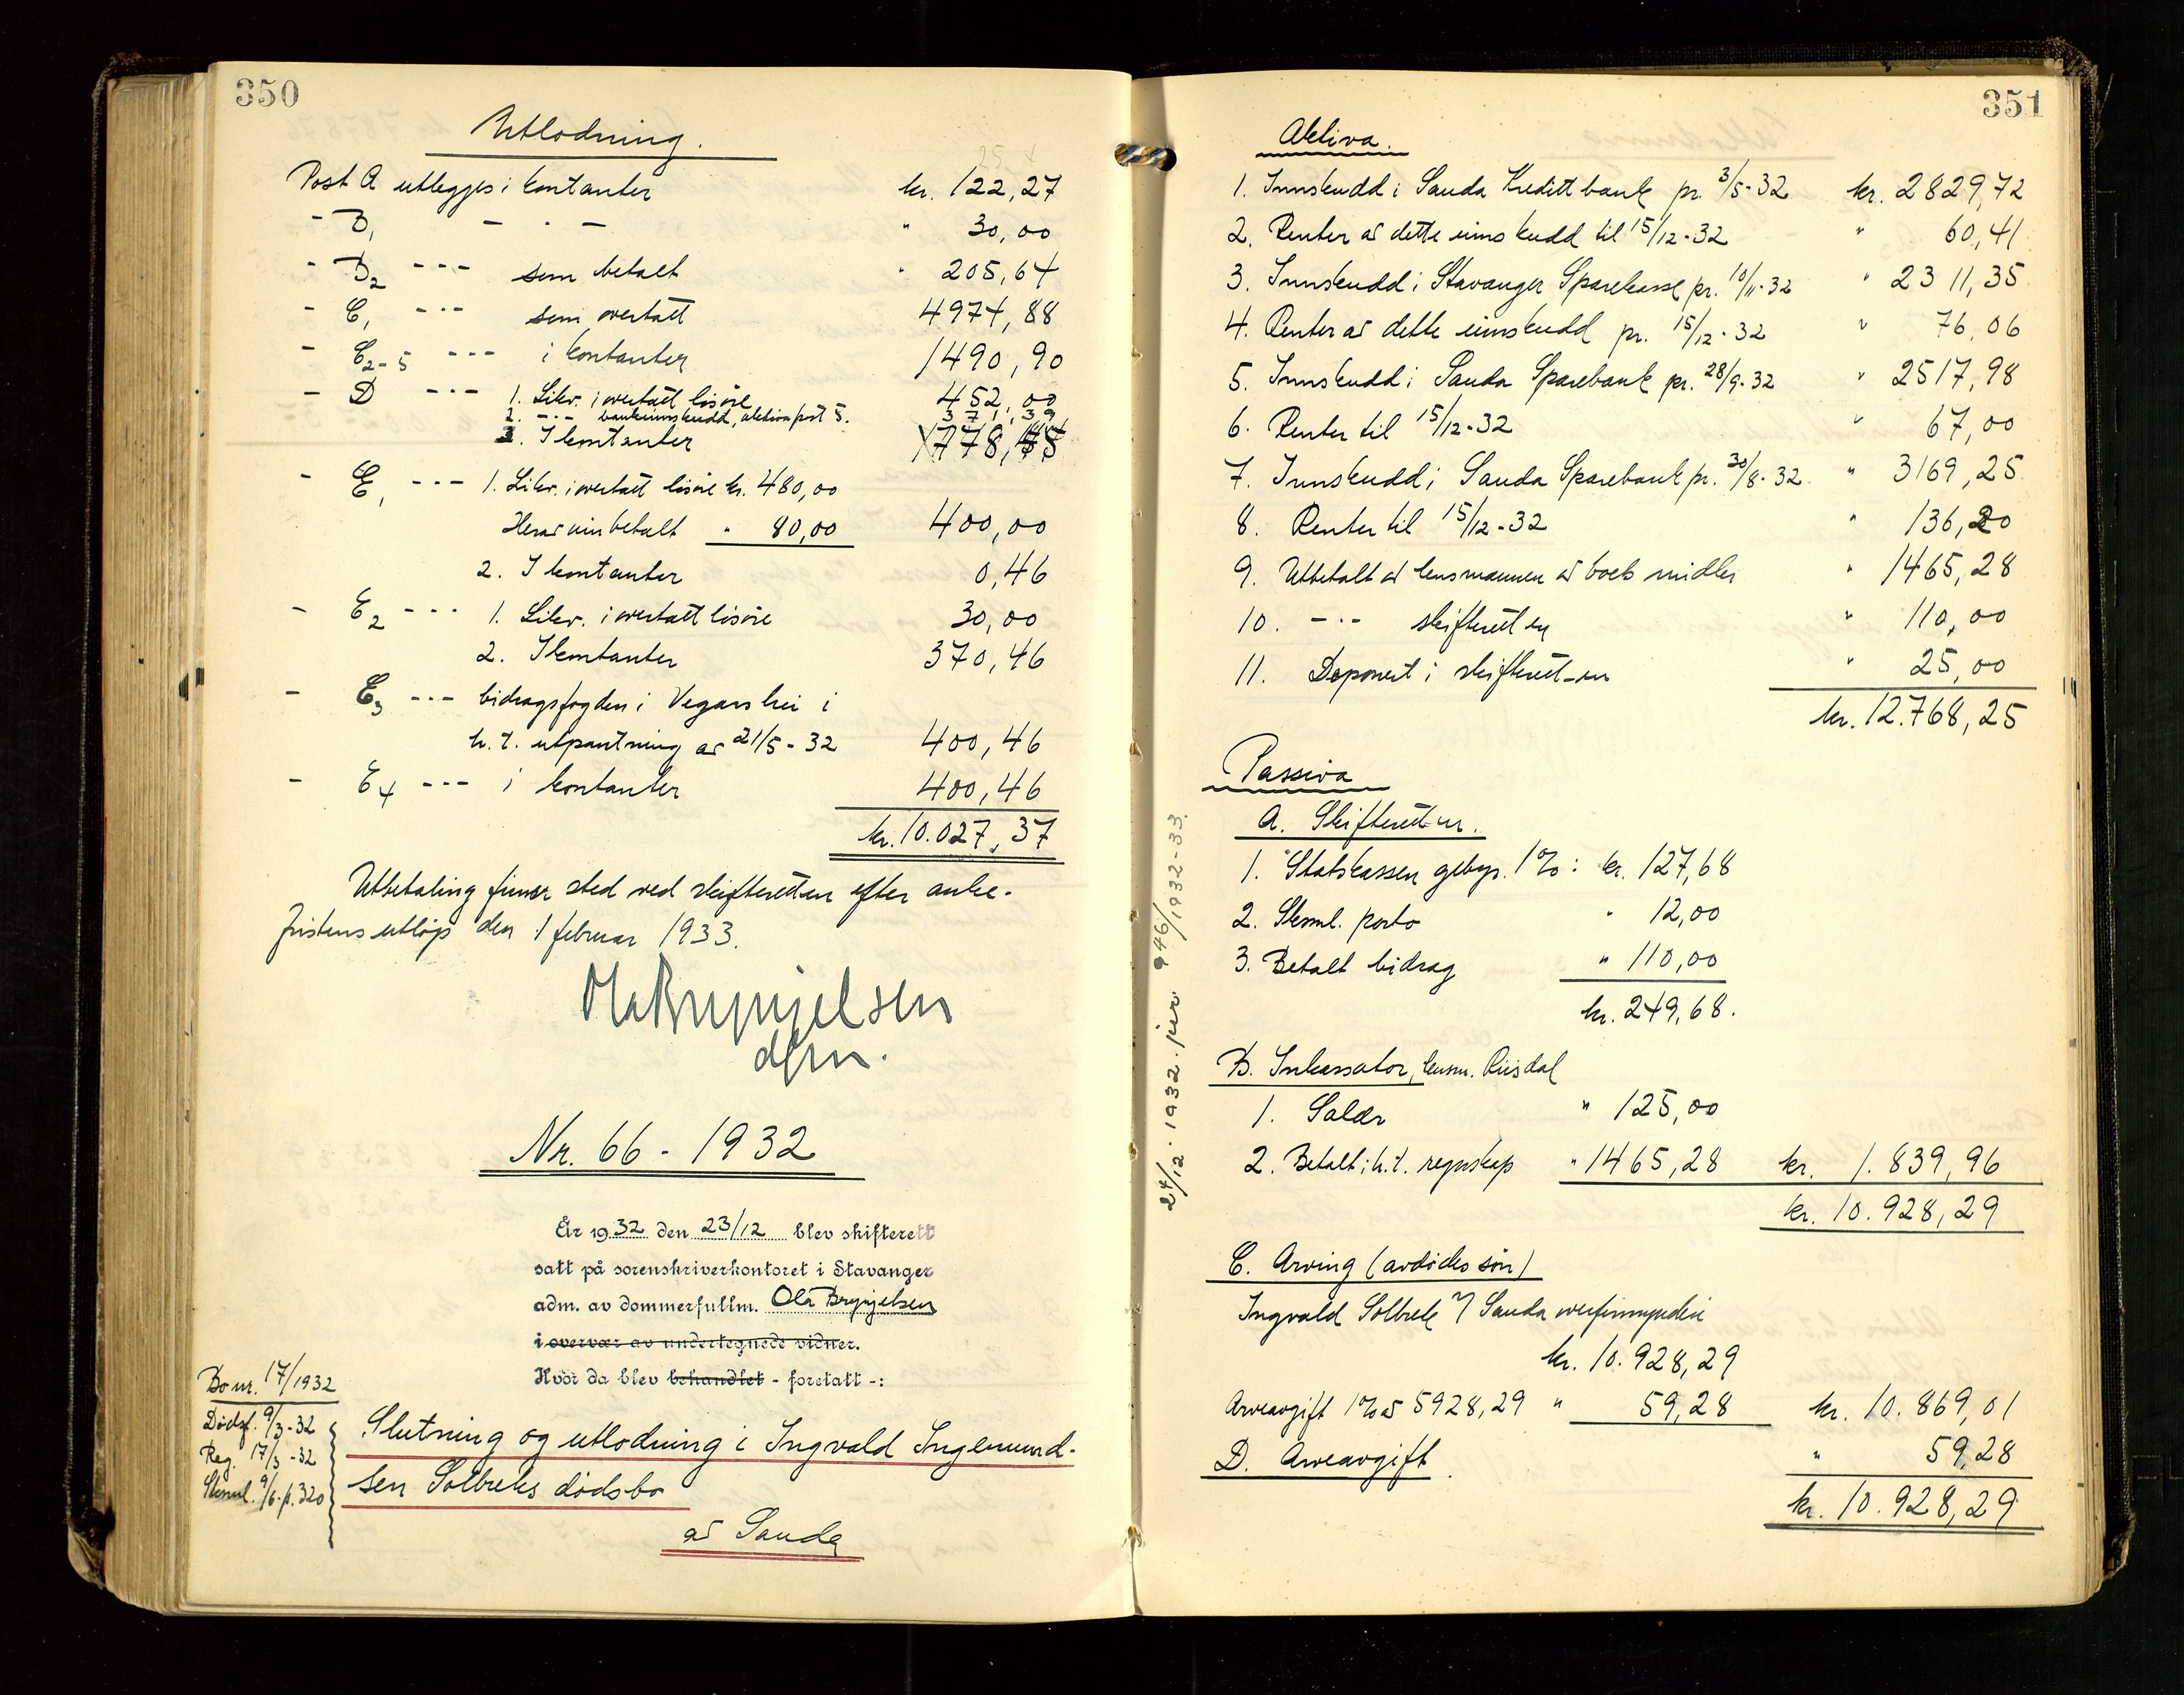 350
Utlodning.
Post A utlegges i kontanter kr. 122,27
- B1 - · - " 30,00
- B2 - · - som betalt " 205,64
- C1 - · - som overtatt 4974,88
- C2-5 - · - i kontanter 1490,90
- D - · - 1. Likv. i overtatt løsøre 452,00
2. - · - bankinnskudd, aktiva post 5.
3. I kontanter
- E1 - · - 1. Likv. i overtatt løsøre kr. 480,00
Herav innbetalt " 80,00 400,00
2. I kontanter 0,46
- E2 - · - 1. Likv. i overtatt løsøre 30,00
2. I kontanter 370,46
- E3 - · - bidragsfogden i Vegårshei i
h.t. utpantning av 21/5-32 400,46
- E4 - · - i kontanter 400,46
kr. 10.027,37
Utbetaling finner sted ved skifteretten efter anke-
fristens utløp den 1 februar 1933.
Ola Brynjelsen
dfm.
Nr. 66 - 1932
År 1932 den 23/12 blev skifterett
satt på sorenskriverkontoret i Stavanger
adm. av dommerfullm. Ola Brynjelsen
i overvær av undertegnede vidner.
Hvor da blev behandlet - foretatt -:
Bo nr. 17/1932
Dødsf. 9/3-32
Reg. 17/3-32
Skml. 9/6-p.320
Slutning og utlodning i Ingvald Ingemund-
sen Solbreks dødsbo
av Sauda
351
Aktiva.
1. Innskudd i Sauda Kreditt bank pr. 3/5-32 kr. 2829,72
2. Renter av dette innskudd til 15/12-32 " 60,41
3. Innskudd i Stavanger Sparekasse pr. 10/11-32 " 2311,35
4. Renter av dette innskudd pr. 15/12-32 " 76,06
5. Innskudd i Sauda Sparebank pr. 28/9-32 " 2517,98
6. Renter til 15/12-32 " 67,00
7. Innskudd i Sauda Sparebank pr. 30/8-32 " 3169,25
8. Renter til 15/12-32 " 136,20
9. Utbetalt av lensmannen av boets midler " 1465,28
10. - · - skifteretten " 110,00
11. Deponert i skifteretten " 25,00
kr. 12.768,25
Passiva
A. Skifteretten.
1. Statskassen gebyr. 1%: kr. 127,68
2. Skml. porto " 12,00
3. Betalt bidrag " 110,00
kr. 249,68.
B. Inkassator, lensm. Riisdal
1. Salær " 125,00
2. Betalt i h.t. regnskap " 1465,28 kr. 1.839,96
kr. 10.928,29
C. Arving (avdødes søn)
Ingvald Solbrek Sauda overformynderi
kr. 10.928,29
Arveavgift 1% av 5928,29 " 59,28 kr. 10.869,01
D. Arveavgift. " 59,28
kr. 10.928,29
24/12-1932. jnr. 946/1932-33.